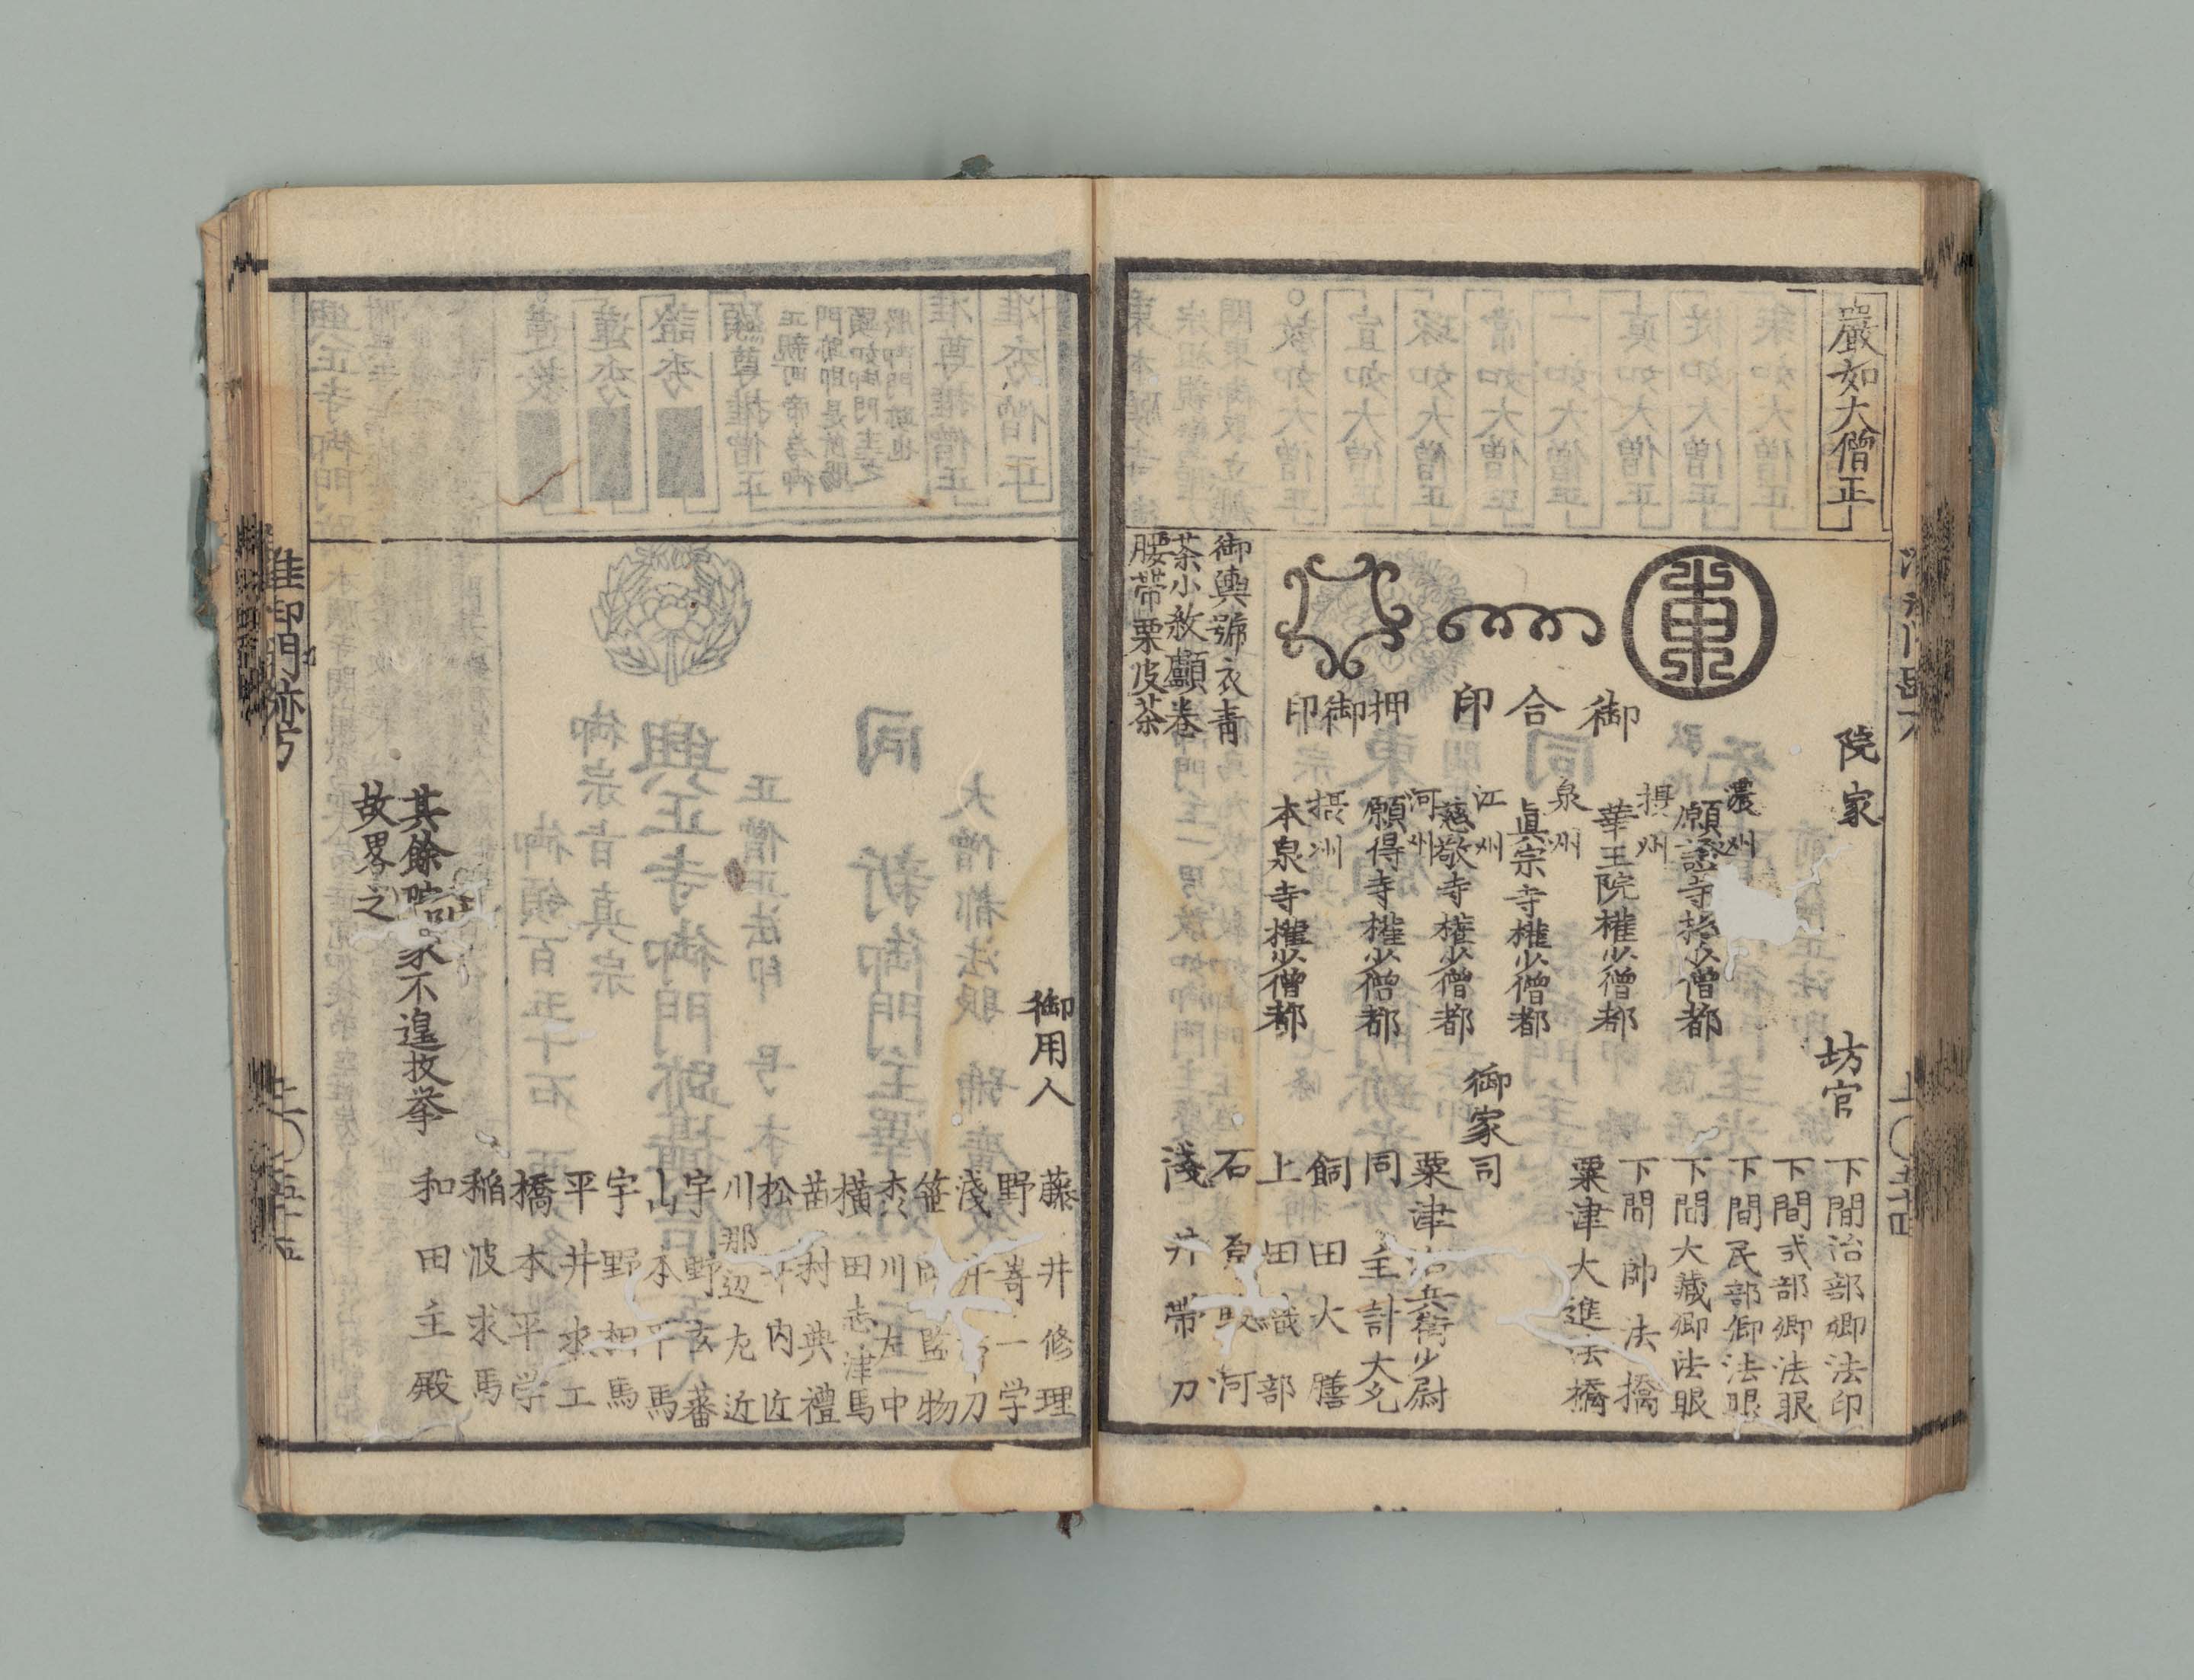 嚴如大僧正
東
御合印
押御印
御輿號衣青
茶小紋顱卷
腰帯栗皮茶
院家
濃州
願證寺権少僧都
摂州
華王院権少僧都
泉州
眞宗寺権少僧都
江州
慈敬寺権少僧都
河州
願得寺権少僧都
摂州
本泉寺権少僧都
坊官
下間治部卿法印
下間式部卿法眼
下間民部卿法眼
下間大藏卿法眼
下間帥法橋
粟津大進法橋
御家司
粟津治兵衛少尉
同主計大允
飼田大膳
上田織部
石原 河
淺井帶刀
上〇五十四
御用人
藤井修理
野嵜一学
淺井 刀
笹岡監物
市川左中
横田志津馬
苗村典禮
松井内匠
川那辺左近
宇野玄蕃
山本平馬
宇野相馬
平井求工
橋本平学
稲波求馬
和田主殿
其餘 家不遑枚挙
故畧之
准御門跡
上〇五十五